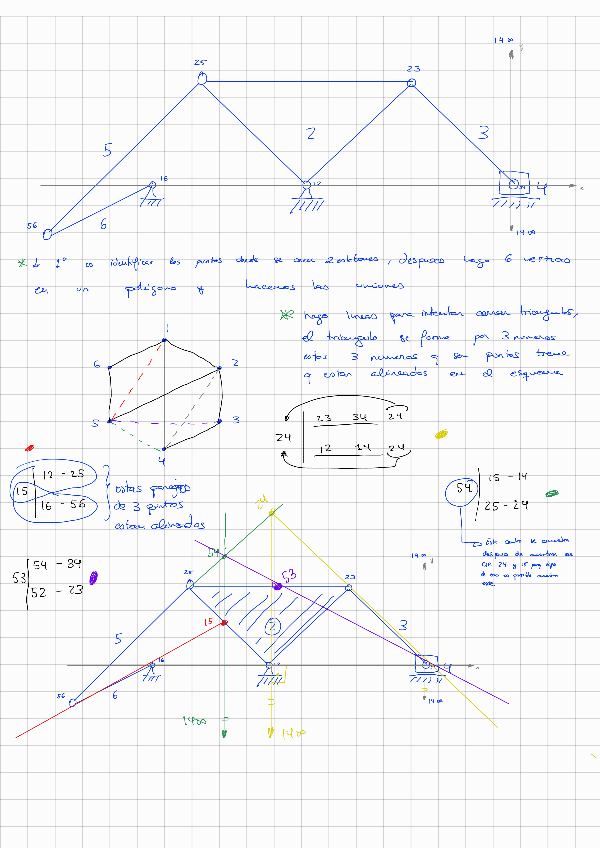 14∞
25
23
5
2
3
16
12
4
56
6
14∞
* lo 1º es identificar los puntos donde se unen 2 eslabones, despues hago 6 vertices
en un poligono y hacemos las uniones
* hago lineas para intentar cerrar triangulos,
el triangulo se forma por 3 numeros
estos 3 numeros q son puntos tiene
q estar alineados en el esquema
1
6
2
5
3
4
24
23 34 24
12 14 24
15
12 - 25
16 - 56
estas parejas
de 3 puntos
estan alineados
54
15 - 14
25 - 24
despues de
24 y 15
53
54 - 34
52 - 23
24
54
53
25
23
14∞
15
2
5
3
16
12
4
56
6
14∞
14∞
14∞